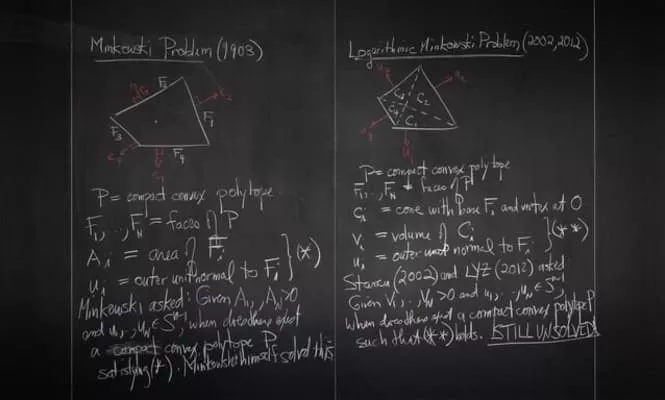 Minkowski Problem (1903)
F₂
F₃
F₁
F₄
P = compact convex polytope.
F₁,...,F_N = faces of P
A_i = area of F_i
u_i = outer unit normal to F_i } (*)
Minkowski asked: Given A₁,..,A_N>0
and u₁,..,u_N ∈ S^{n-1}, when does there exist
a compact convex polytope P
satisfying (*). Minkowski himself solved this.
Logarithmic Minkowski Problem (2002, 2012)
C₃
C₂
C₄
C₁
P = compact convex polytope
F₁,...,F_N = faces of P
C_i = cone with base F_i and vertex at O
V_i = volume of C_i
u_i = outer unit normal to F_i } (**)
Stancu (2002) and LYZ (2012) asked
Given V₁,..,V_N>0 and u₁,..,u_N ∈ S^{n-1},
when does there exist a compact convex polytope P
such that (**) holds. STILL UNSOLVED